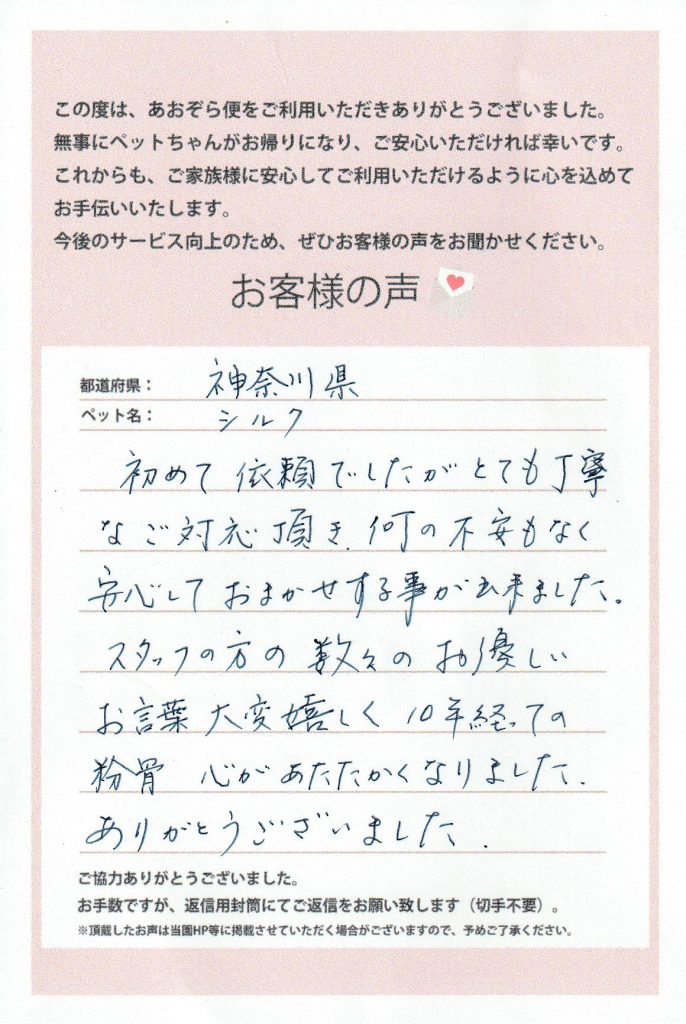 この度は、あおぞら便をご利用いただきありがとうございました。
無事にペットちゃんがお帰りになり、ご安心いただければ幸いです。
これからも、ご家族様に安心してご利用いただけるように心を込めて
お手伝いいたします。
今後のサービス向上のため、ぜひお客様の声をお聞かせください。
お客様の声
都道府県： 神奈川県
ペット名： シルク
初めて依頼でしたがとても丁寧
なご対応頂き、何の不安もなく
安心しておまかせする事が出来ました。
スタッフの方の数々のお優しい
お言葉大変嬉しく10年経っての
粉骨 心があたたかくなりました.
ありがとうございました.
ご協力ありがとうございました。
お手数ですが、返信用封筒にてご返信をお願い致します（切手不要）。
※頂戴したお声は当園HP等に掲載させていただく場合がございますので、予めご了承ください。